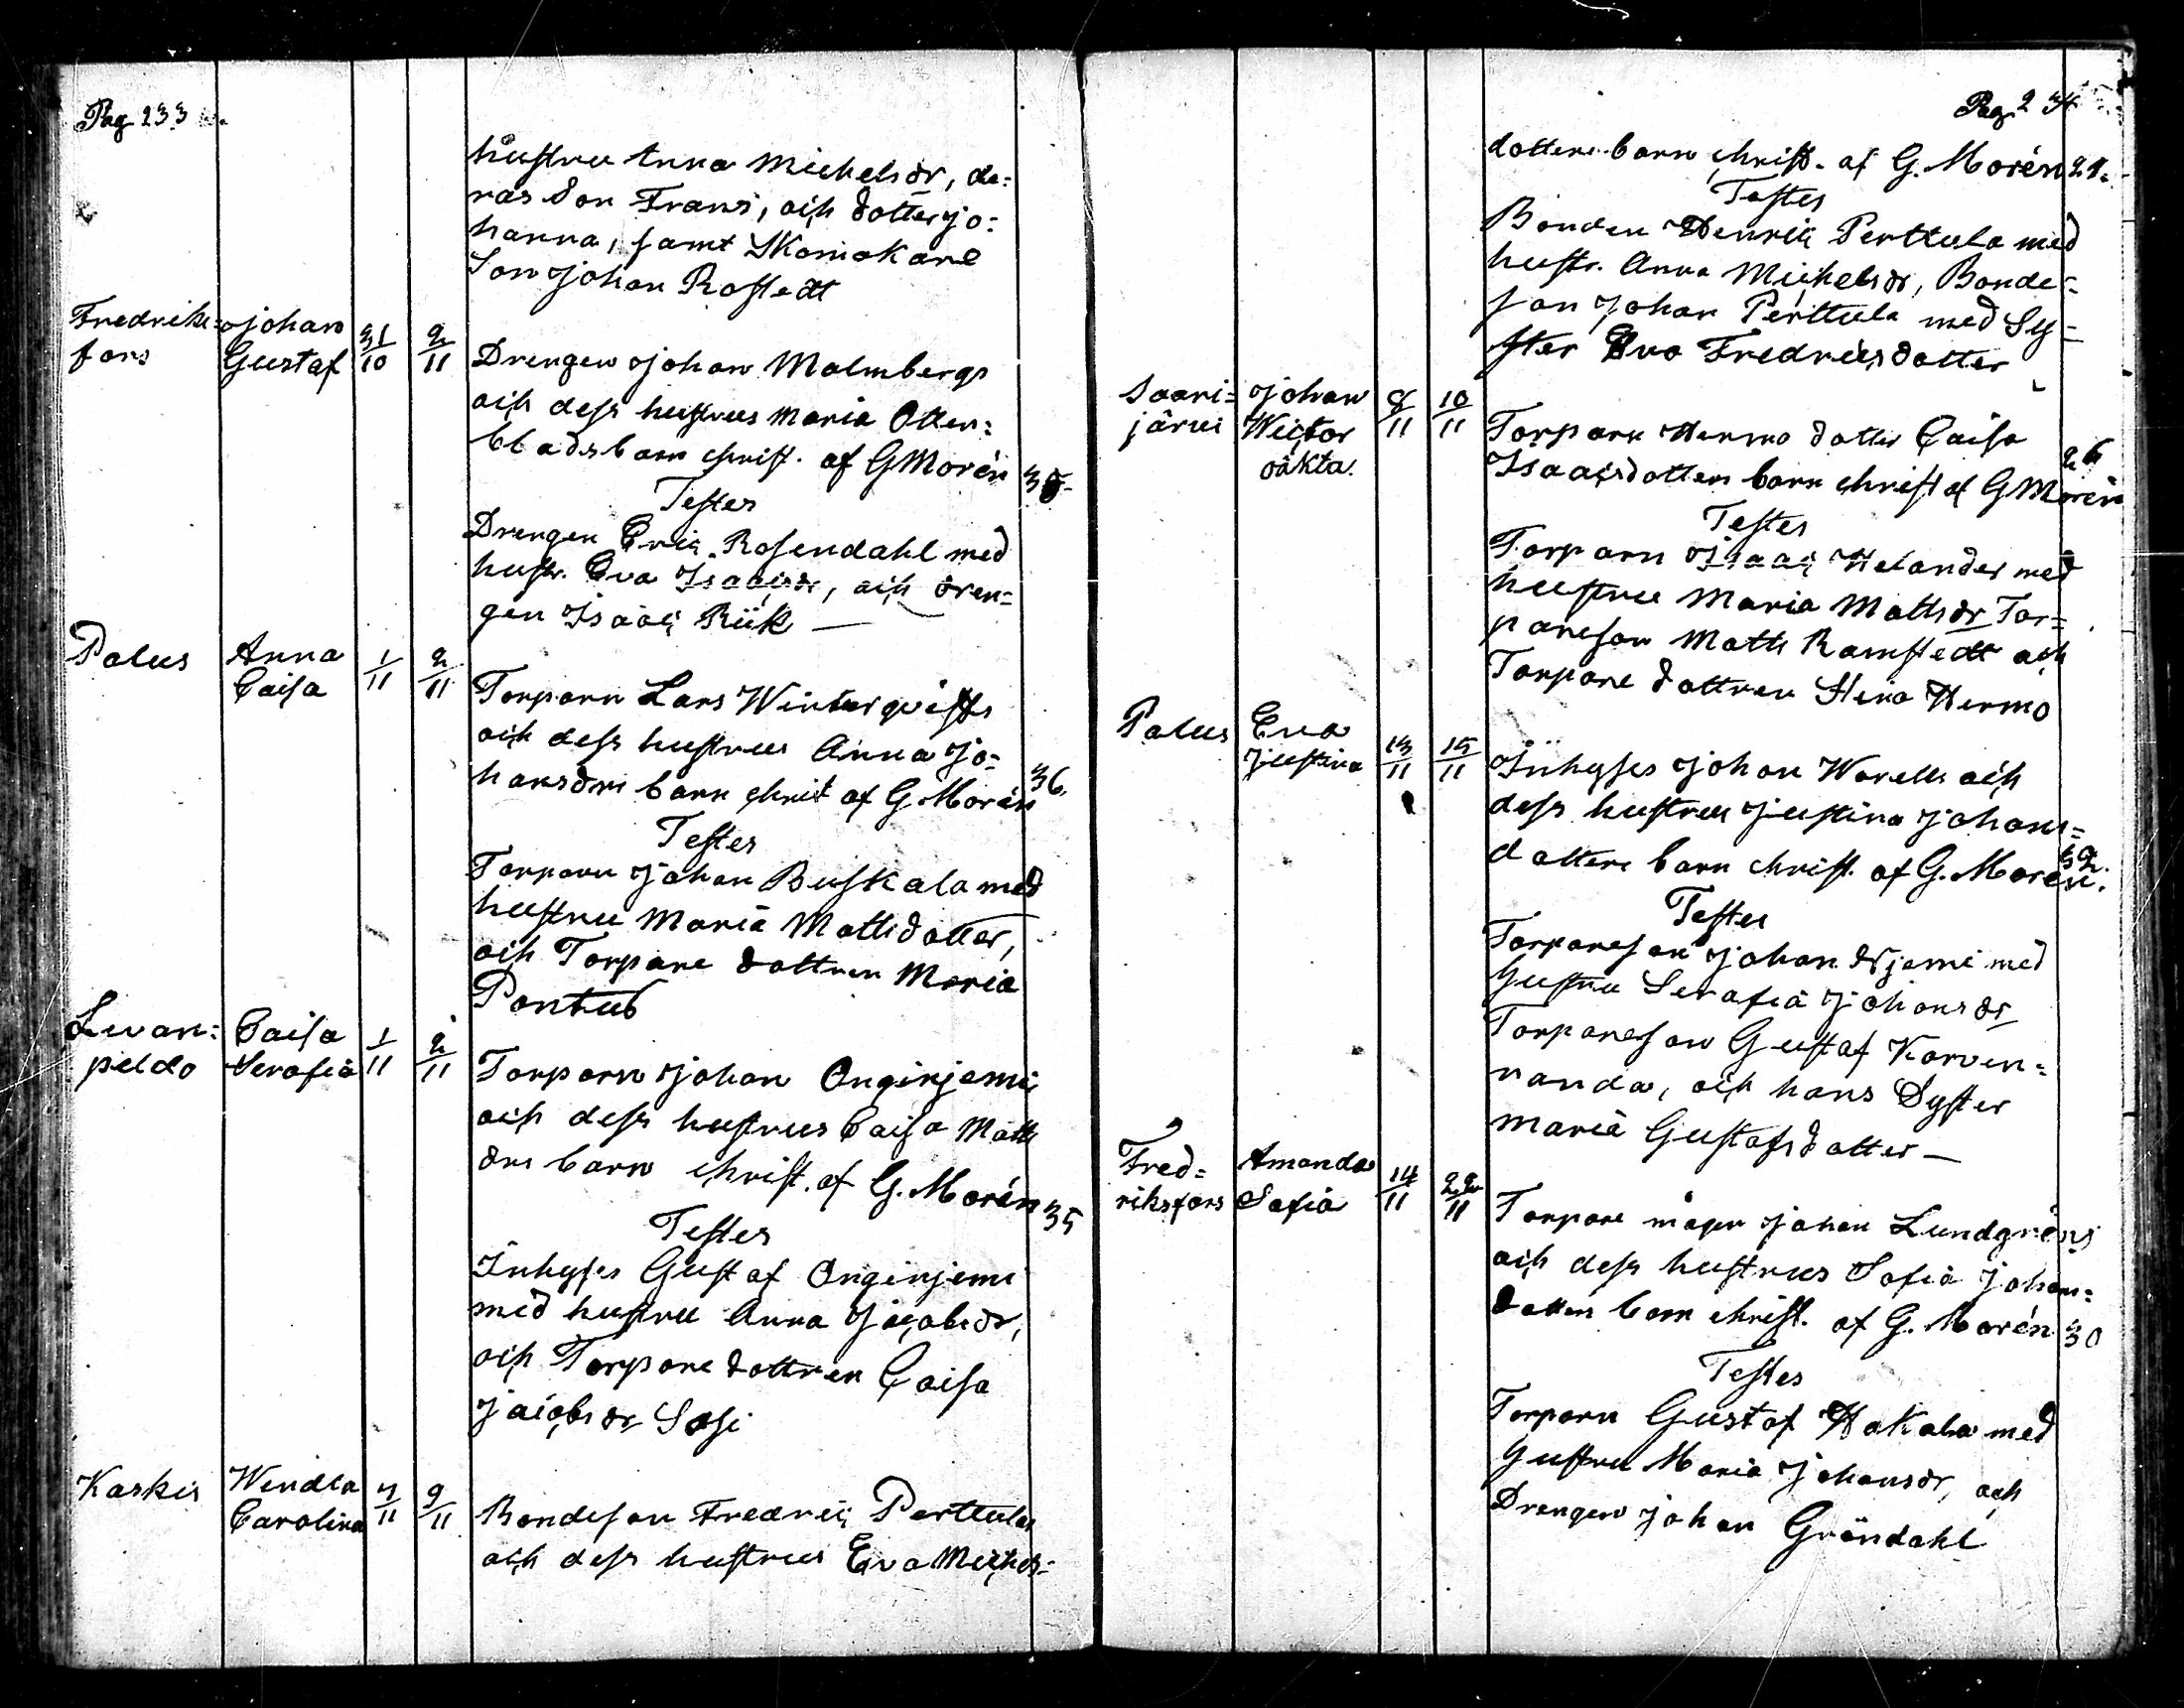 Pag 233
hustru Anna Michelsdr, de=
ras Son Frans, och dotter Jo=
hanna, samt Skomakare
Son Johan Rostedt
Fredriks= Johan 31/10 2/11
fors Gustaf Drengen Johan Malmbergs
och dess hustrus Maria Otten=
blads barn christ. af G Morén
Testes
Drengen Eric Rosendahl med
hustr. Eva Isaacsdr, och dren=
gen Isaac Riik —
Palus Anna Caisa 1/11 2/11
Torparn Lars Winterqvists
och dess hustrus Anna Jo=
hansdrs barn christ af G. Morén 36.
Testes
Torparn Johan Buskala med
hustru Maria Mattsdotter,
och Torpare dottren Maria
Pontub
Levan= Caisa 1/11 2/11
peldo Serafia Torparn Johan Onginjemi
och dess hustrus Caisa Matts
drs barn christ. af G. Morén 35
Testes
Inhyses Gustaf Onginjemi
med hustru Anna Jacobsdr,
och Torpare dottren Caisa
Jacobsdr Sasi
Kaskis Wendla Carolina 7/11 9/11
Bondeson Fredric Perttulas
och dess hustrus Eva Michels=
Pag. 234
dotters barn christ. af G. Morén 21.
Testes
Bonden Henric Perttula med
hustr. Anna Michelsdr, Bonde=
son Johan Perttula med Sy=
ster Eva Fredricsdotter
Saari= Johan 8/11 10/11
järvi Wictor oäkta.
Torpare Hermo dotter Caisa
Isaacsdotters barn christ af G Morén 26
Testes
Torparn Isaac Helander med
hustru Maria Mattsdr Tor=
pareson Matts Ramstedt och
Torpare dottren Stina Hermo
Palus Eva Justina 13/11 15/11
Inhyses Johan Warells och
dess hustrus Justina Johans=
dotters barn christ. af G. Morén. 32.
Testes
Torpareson Johan Ojemi med
Hustru Serafia Johansdr
Torpareson Gustaf Korven=
randa, och hans Syster
Maria Gustafsdotter —
Fred= Amanda 14/11 22/11
riksfors Sofia
Torpare mågen Johan Lundgréns
och dess hustrus Sofia Johans=
dotters barn christ. af G. Morén 30
Testes
Torparn Gustaf Hakala med
Hustru Maria Johansdr, och
Drengen Johan Gröndahl